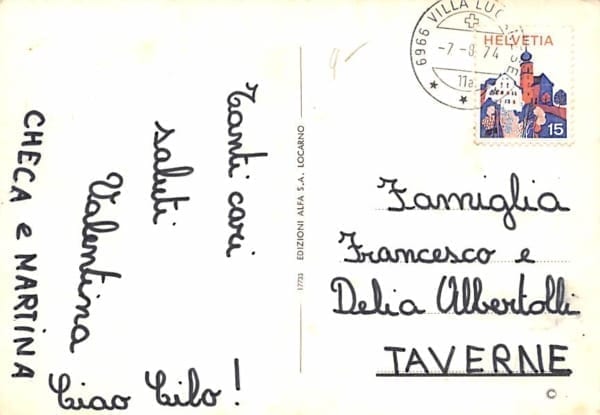 Tanti cari
saluti
Valentina
CHECA e MARTINA
Ciao Cilo!
17733 EDIZIONI ALFA S.A. LOCARNO
9-
6966 VILLA LUGANESE
-7-8.74
11a
HELVETIA
15
Famiglia
Francesco e
Delia Albertolli
TAVERNE
©